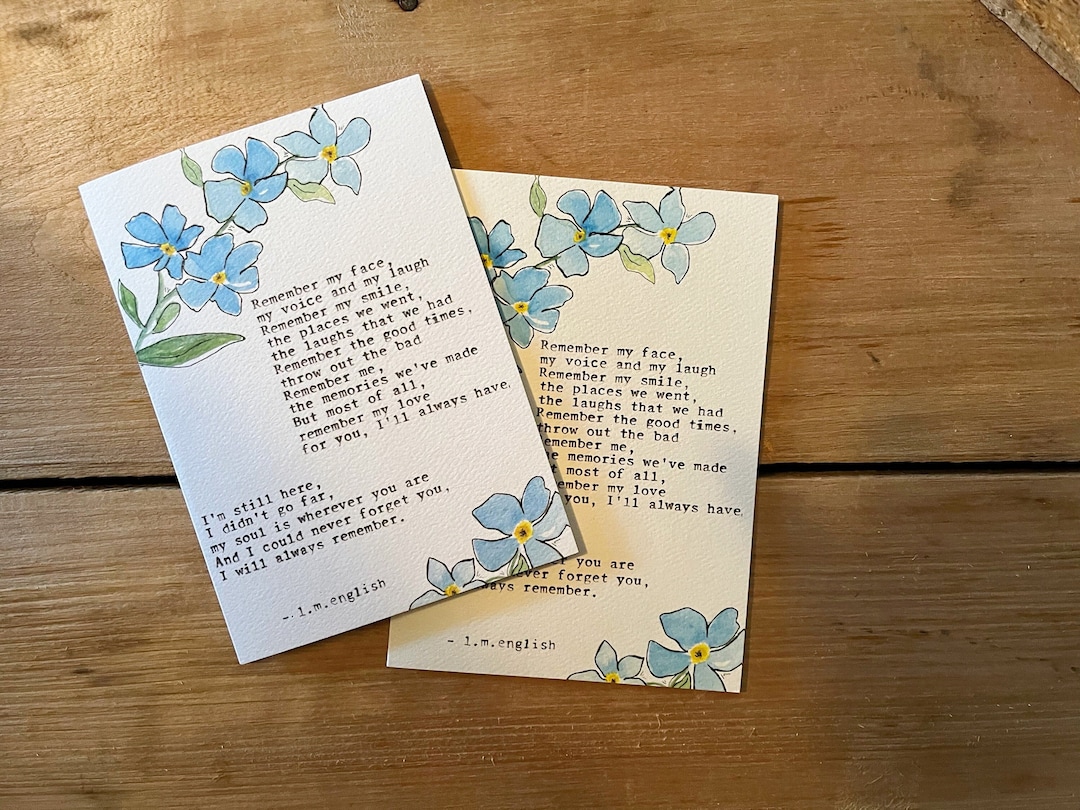 Remember my face,
my voice and my laugh
Remember my smile,
the places we went,
the laughs that we had
Remember the good times,
throw out the bad
Remember me,
the memories we've made
But most of all,
remember my love
for you, I'll always have.
I'm still here,
I didn't go far,
my soul is wherever you are
And I could never forget you,
I will always remember.
- l.m.english
Remember my face,
my voice and my laugh
Remember my smile,
the places we went,
the laughs that we had
Remember the good times,
throw out the bad
emember me,
memories we've made
most of all,
ember my love
you, I'll always have.
you are
ever forget you,
ays remember.
- l.m.english